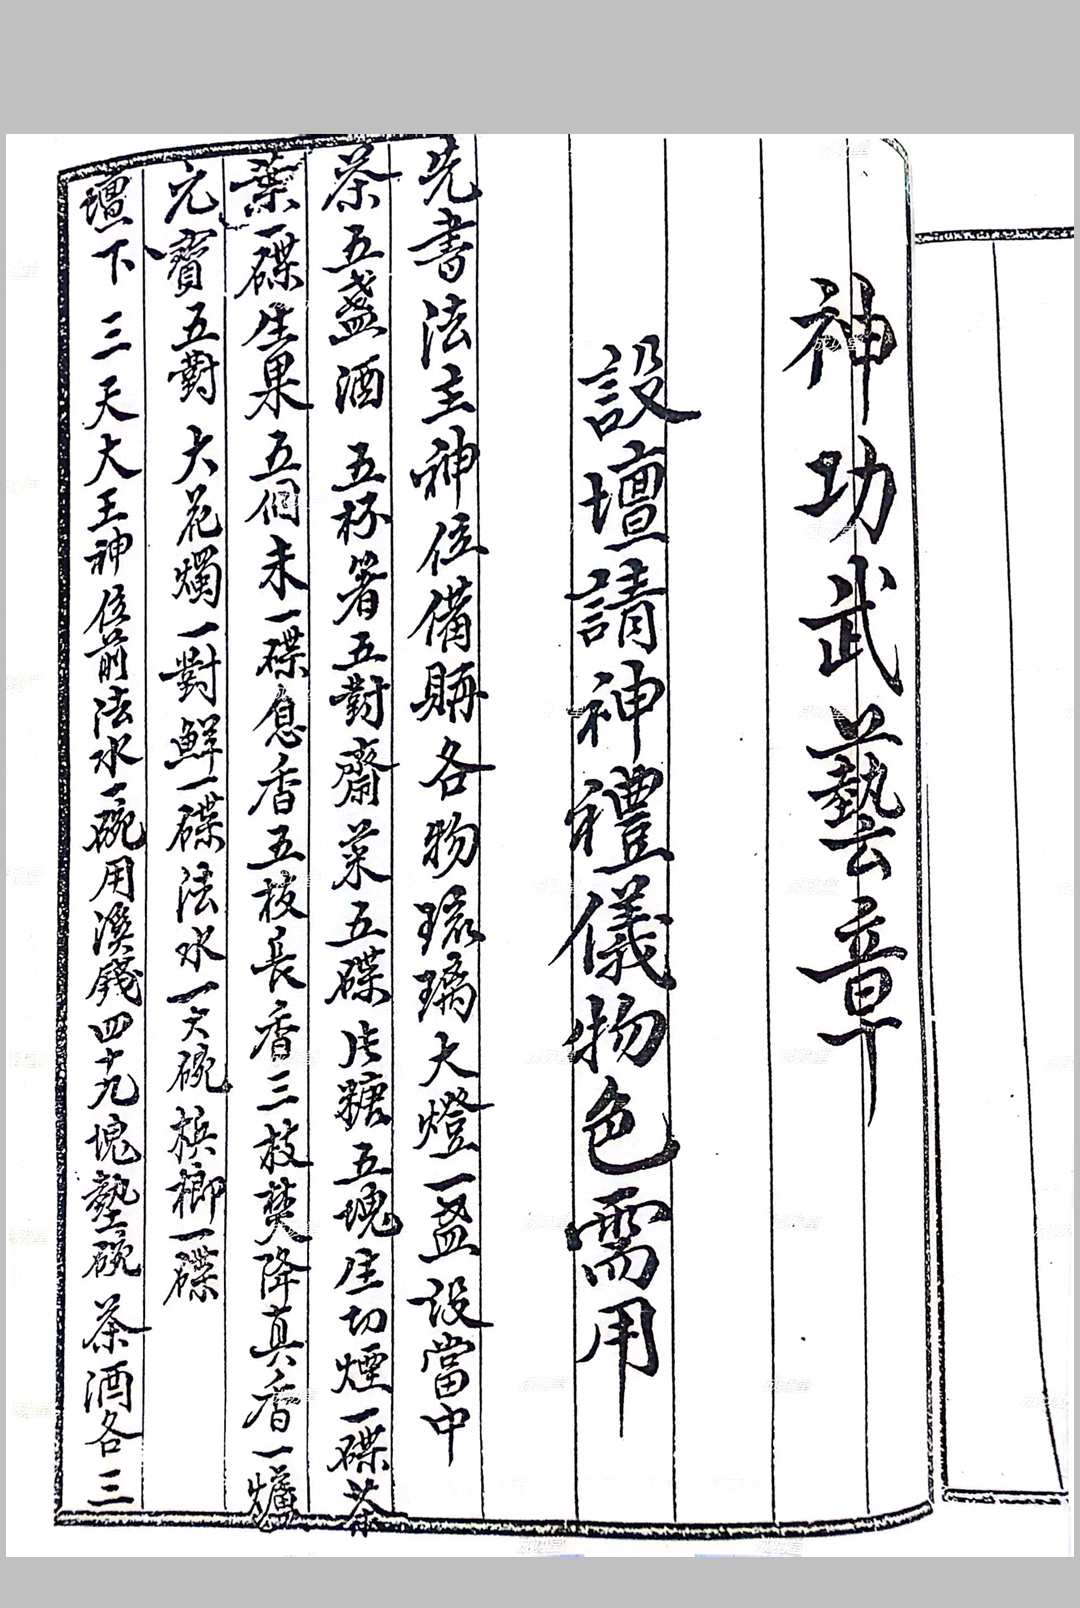 神功武藝章
設壇請神禮儀物色需用
先書法主神位備購各物琉璃大燈一盞設當中
茶五盞酒五杯箸五對齋菜五碟片糖五塊生切煙一碟茶
葉一碟生果五個米一碟息香五枝長香三枝焚降真香一爐
元寶五對大花燭一對鮮一碟法水一大碗檳榔一碟
壇下三天大王神位前法水一碗用溪錢四十九塊墊碗茶酒各三